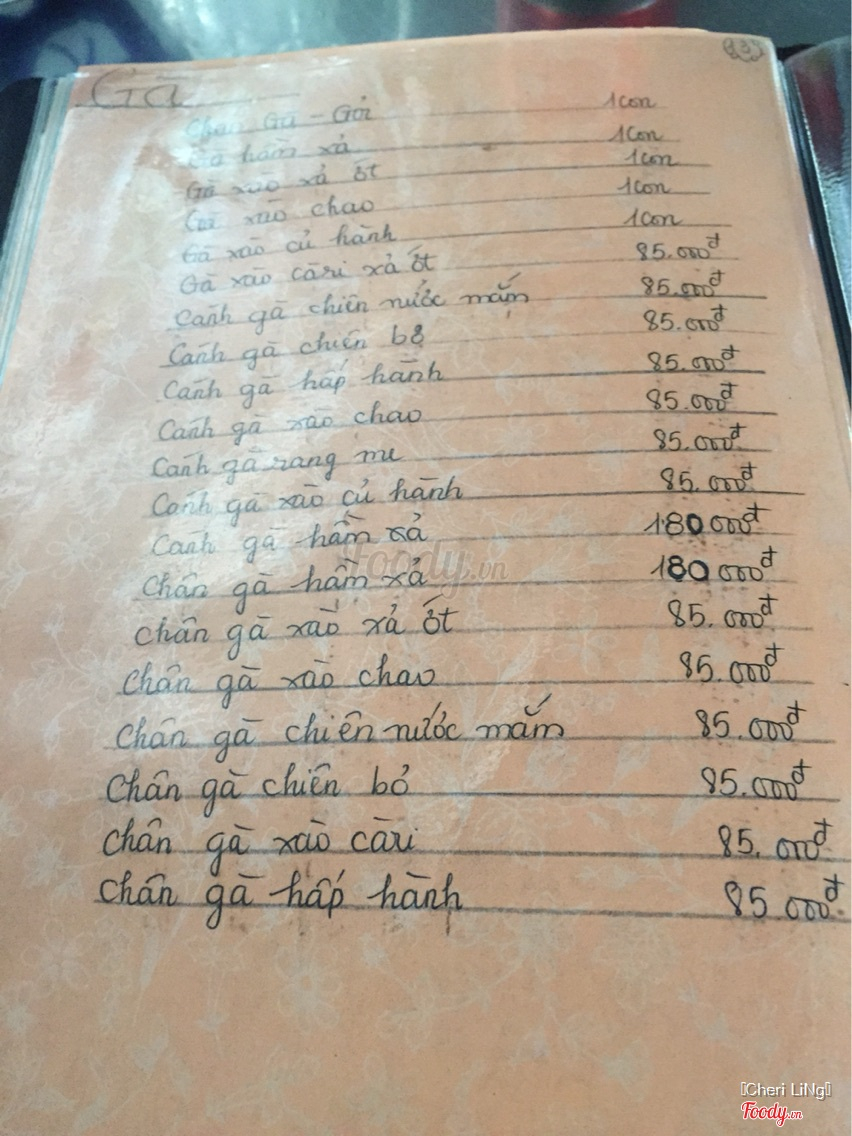 13
Gà
Cháo Gà - Gỏi 1con
Gà hầm xả 1con
Gà xào xả ớt 1con
Gà xào chao 1con
Gà xào củ hành 1con
Gà xào càri xả ớt 85.000đ
Cánh gà chiên nước mắm 85.000đ
Cánh gà chiên bơ 85.000đ
Cánh gà hấp hành 85.000đ
Cánh gà xào chao 85.000đ
Cánh gà rang me 85.000đ
Cánh gà xào củ hành 85.000đ
Cánh gà hầm xả 180000đ
Chân gà hầm xả 180000đ
Chân gà xào xả ớt 85.000đ
Chân gà xào chao 85.000đ
Chân gà chiên nước mắm 85.000đ
Chân gà chiên bơ 85.000đ
Chân gà xào càri 85.000đ
Chân gà hấp hành 85000đ
Foody.vn
[Cheri LiNg]
Foody.vn